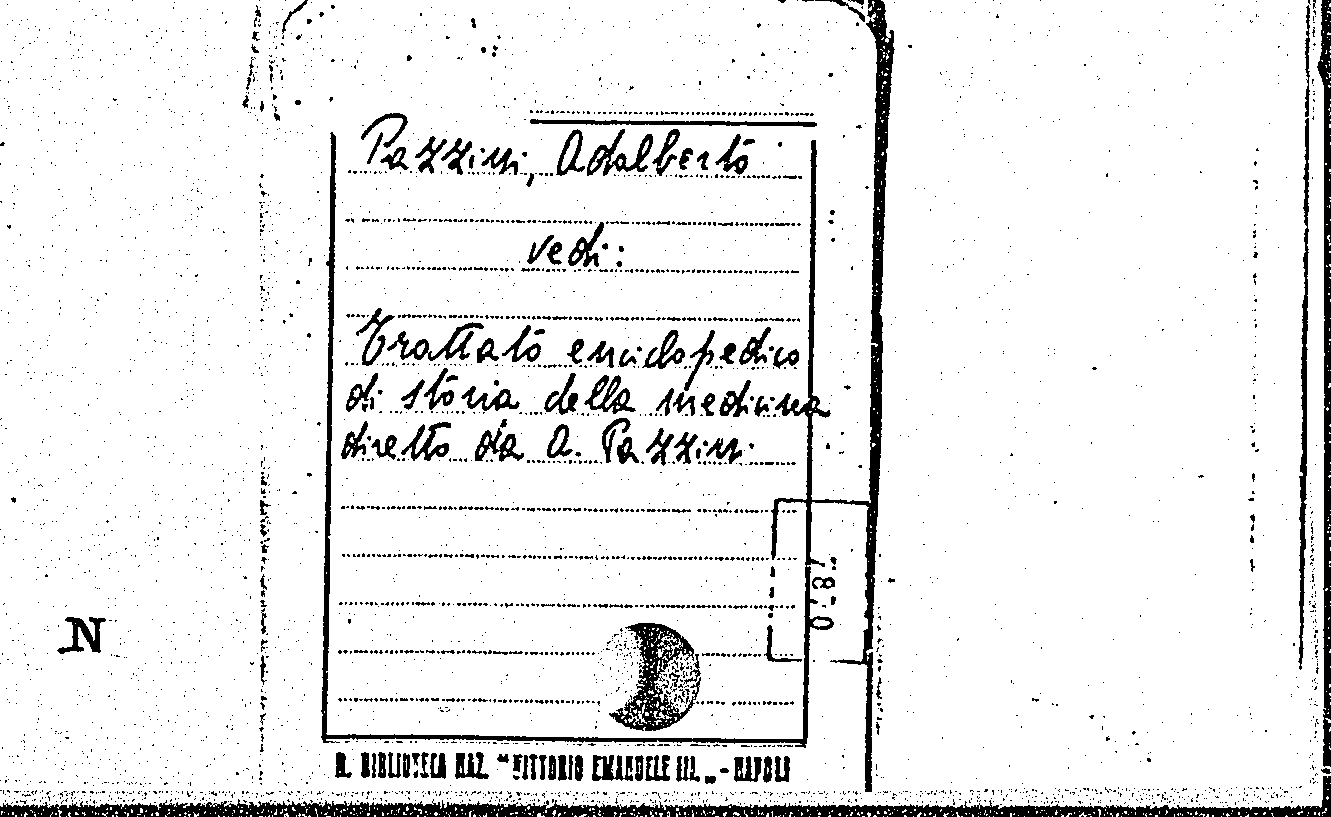 Pazzini, Adalberto
vedi:
Trattato enciclopedico
di storia della medicina
diretto da A. Pazzini.
0787
N
R. BIBLIOTECA NAZ. "VITTORIO EMANUELE III." - NAPOLI